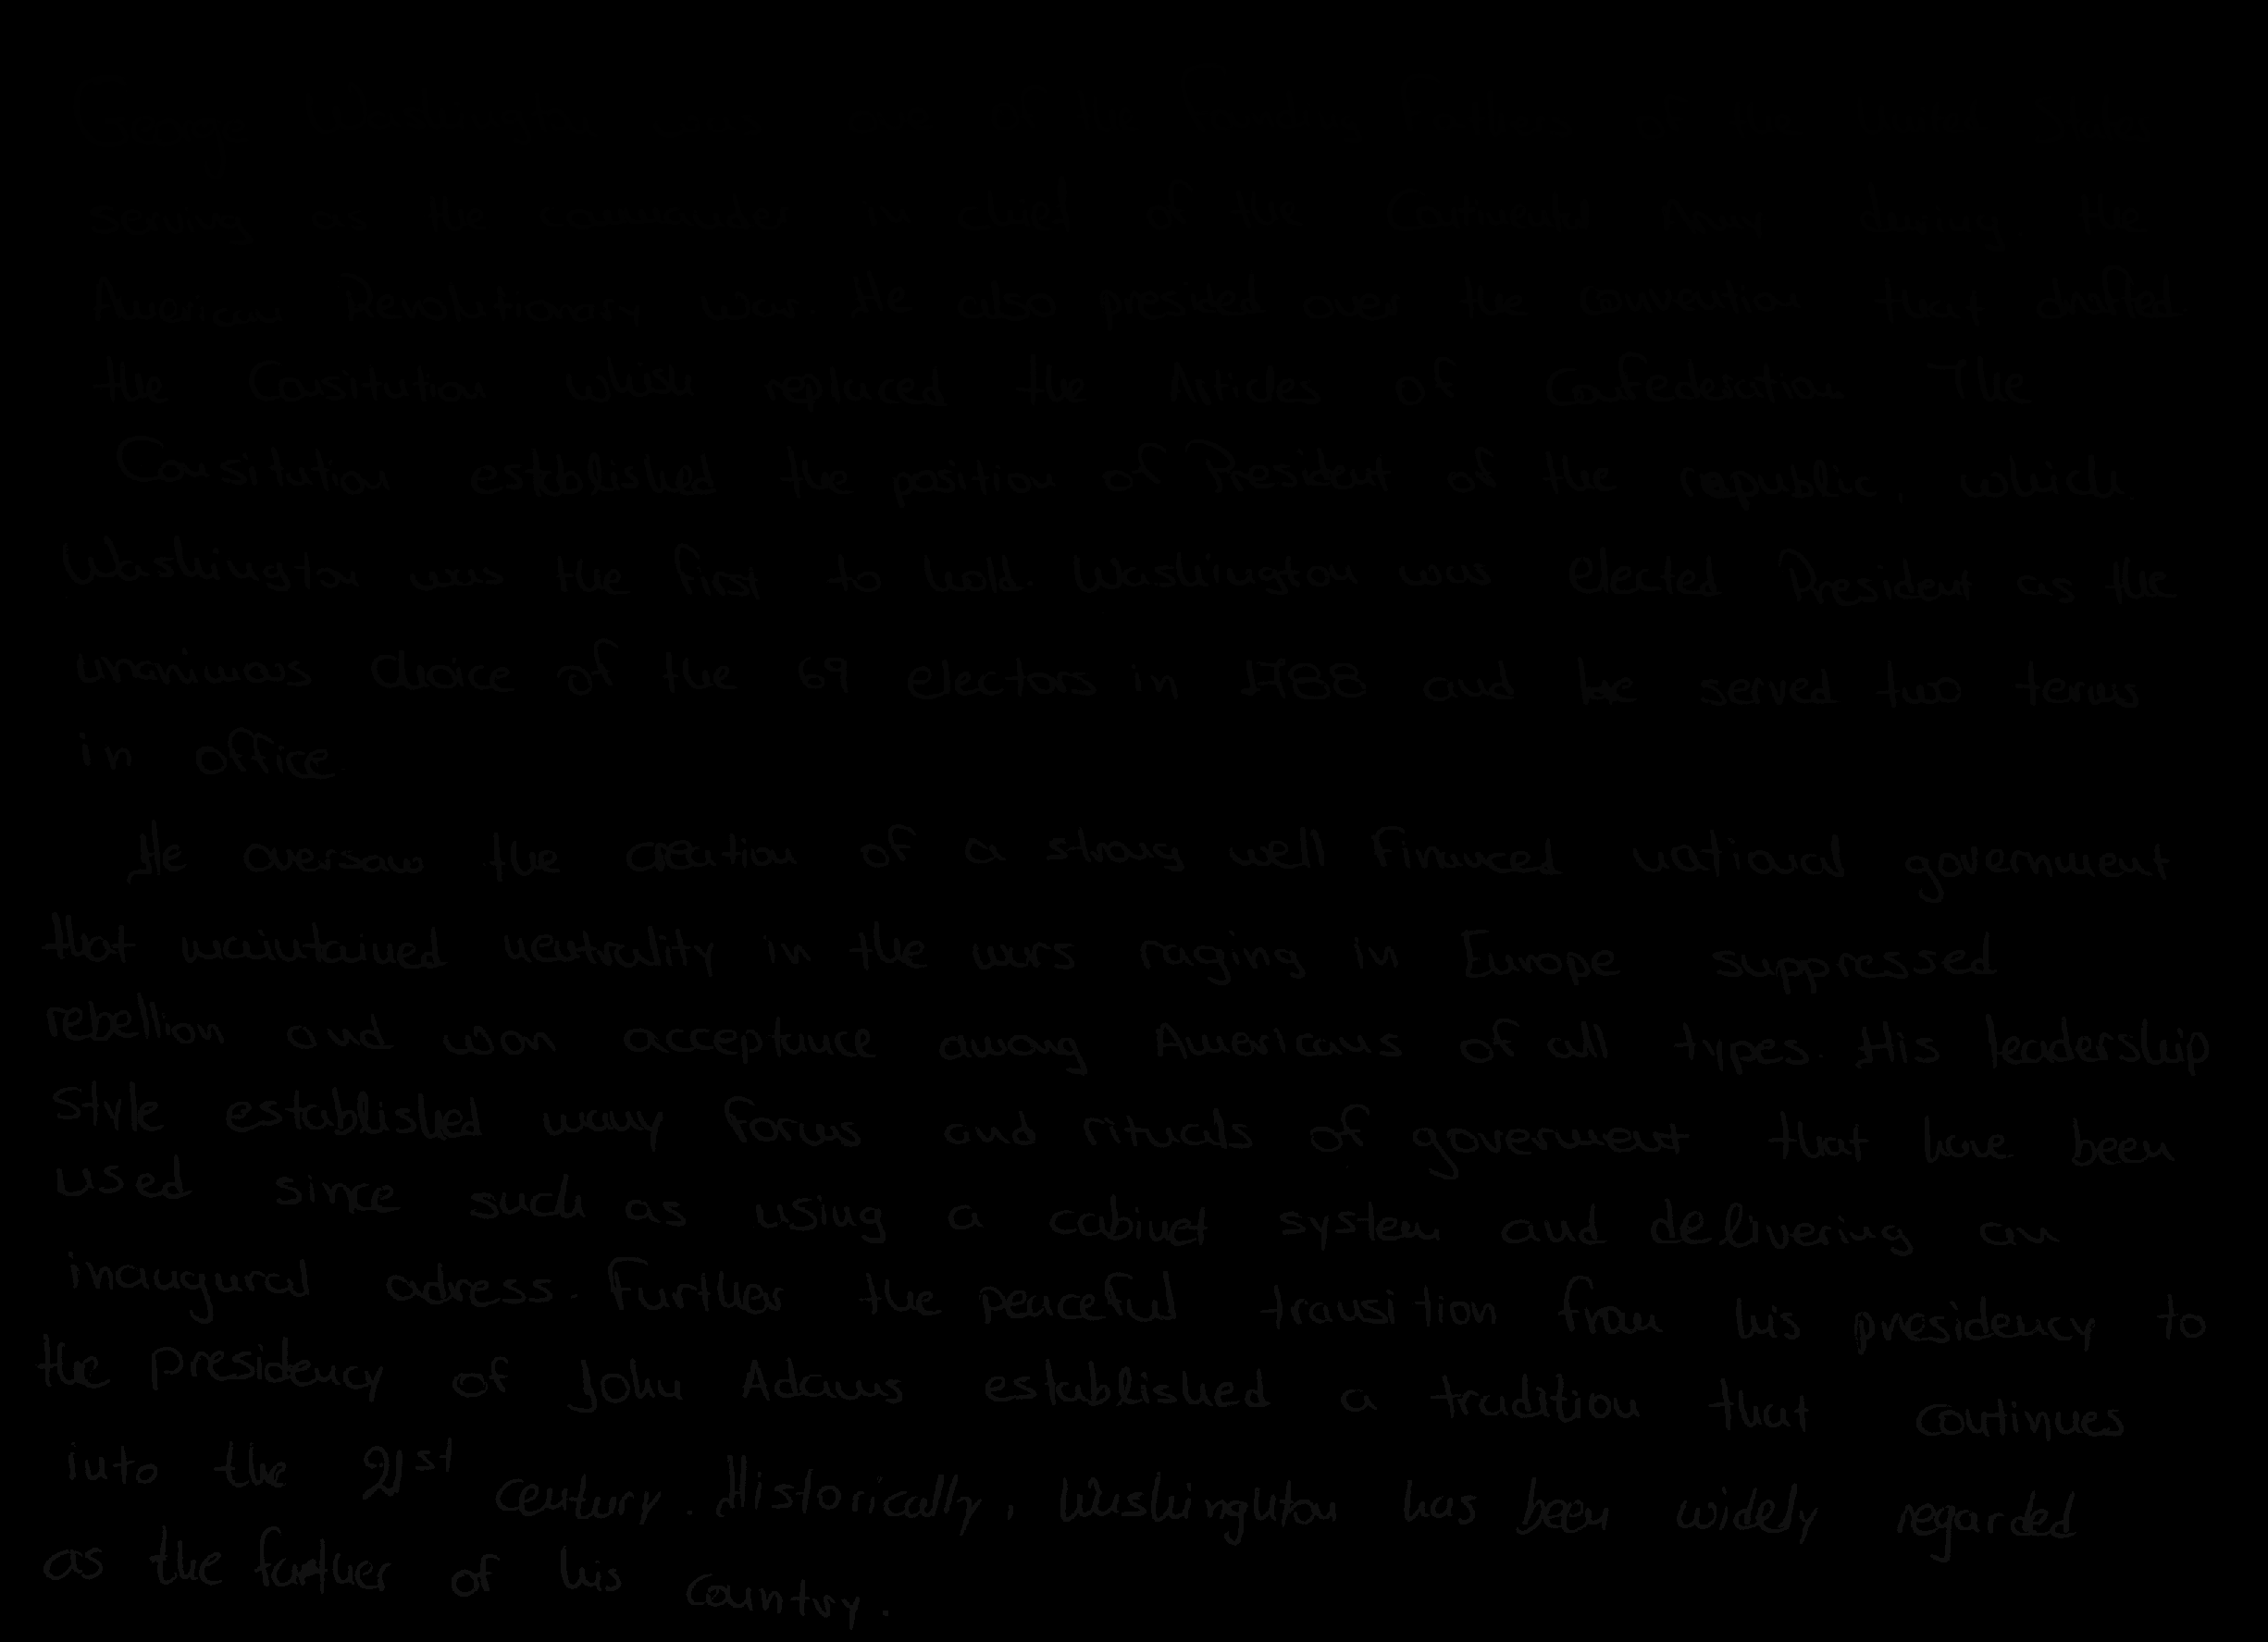 George Washington was one of the Founding Fathers of the United States
serving as the commander in chief of the Continental Army during the
American Revolutionary war. He also presided over the convention that drafted
the Consitution which replaced the Articles of Confederation The
Consitution established the position of President of the republic, which
Washington was the first to hold. Washington was elected President as the
unanimous choice of the 69 electors in 1788 and he served two terms
in office.
He oversaw the creation of a strong well financed national government
that maintained neutrality in the wars raging in Europe suppressed
rebellion and won acceptance among Americans of all types. His leadership
style established many forms and rituals of government that have been
used since such as using a cabinet system and delivering an
inaugural adress. Further the peaceful transition from his presidency to
the presidency of John Adams established a tradition that continues
into the 21st century. Historically, Washinghton has been widely regarded
as the father of his country.